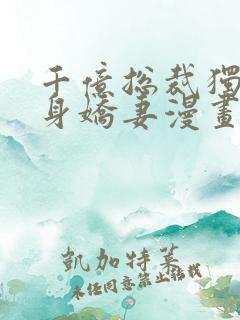 千億總裁獨
身嬌妻漫畫
凱加特萊
未經同意禁止轉載